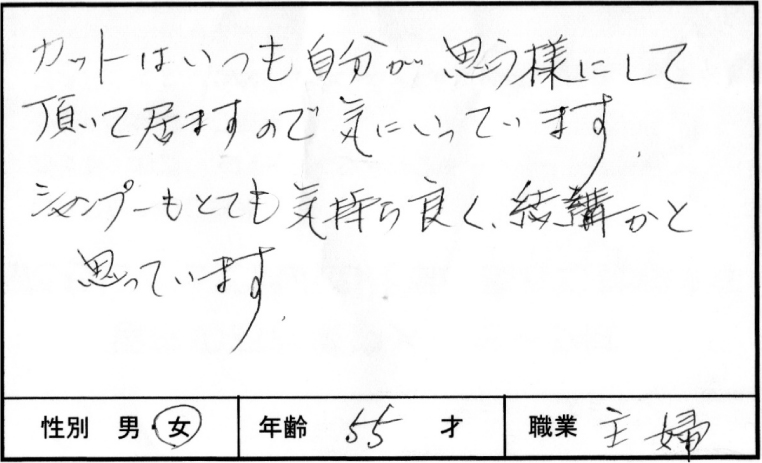 カットはいつも自分が思う様にして
頂いて居ますので気にいっています.
シャンプーもとても気持ち良く、結講かと
思っています.
性別 男・女 年齢 55 才 職業 主婦